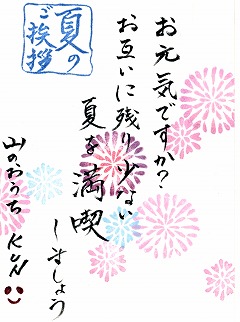 夏の
ご挨拶
お元気ですか?
お互いに残り少ない
夏を満喫
しましょう
山のおうち KUN